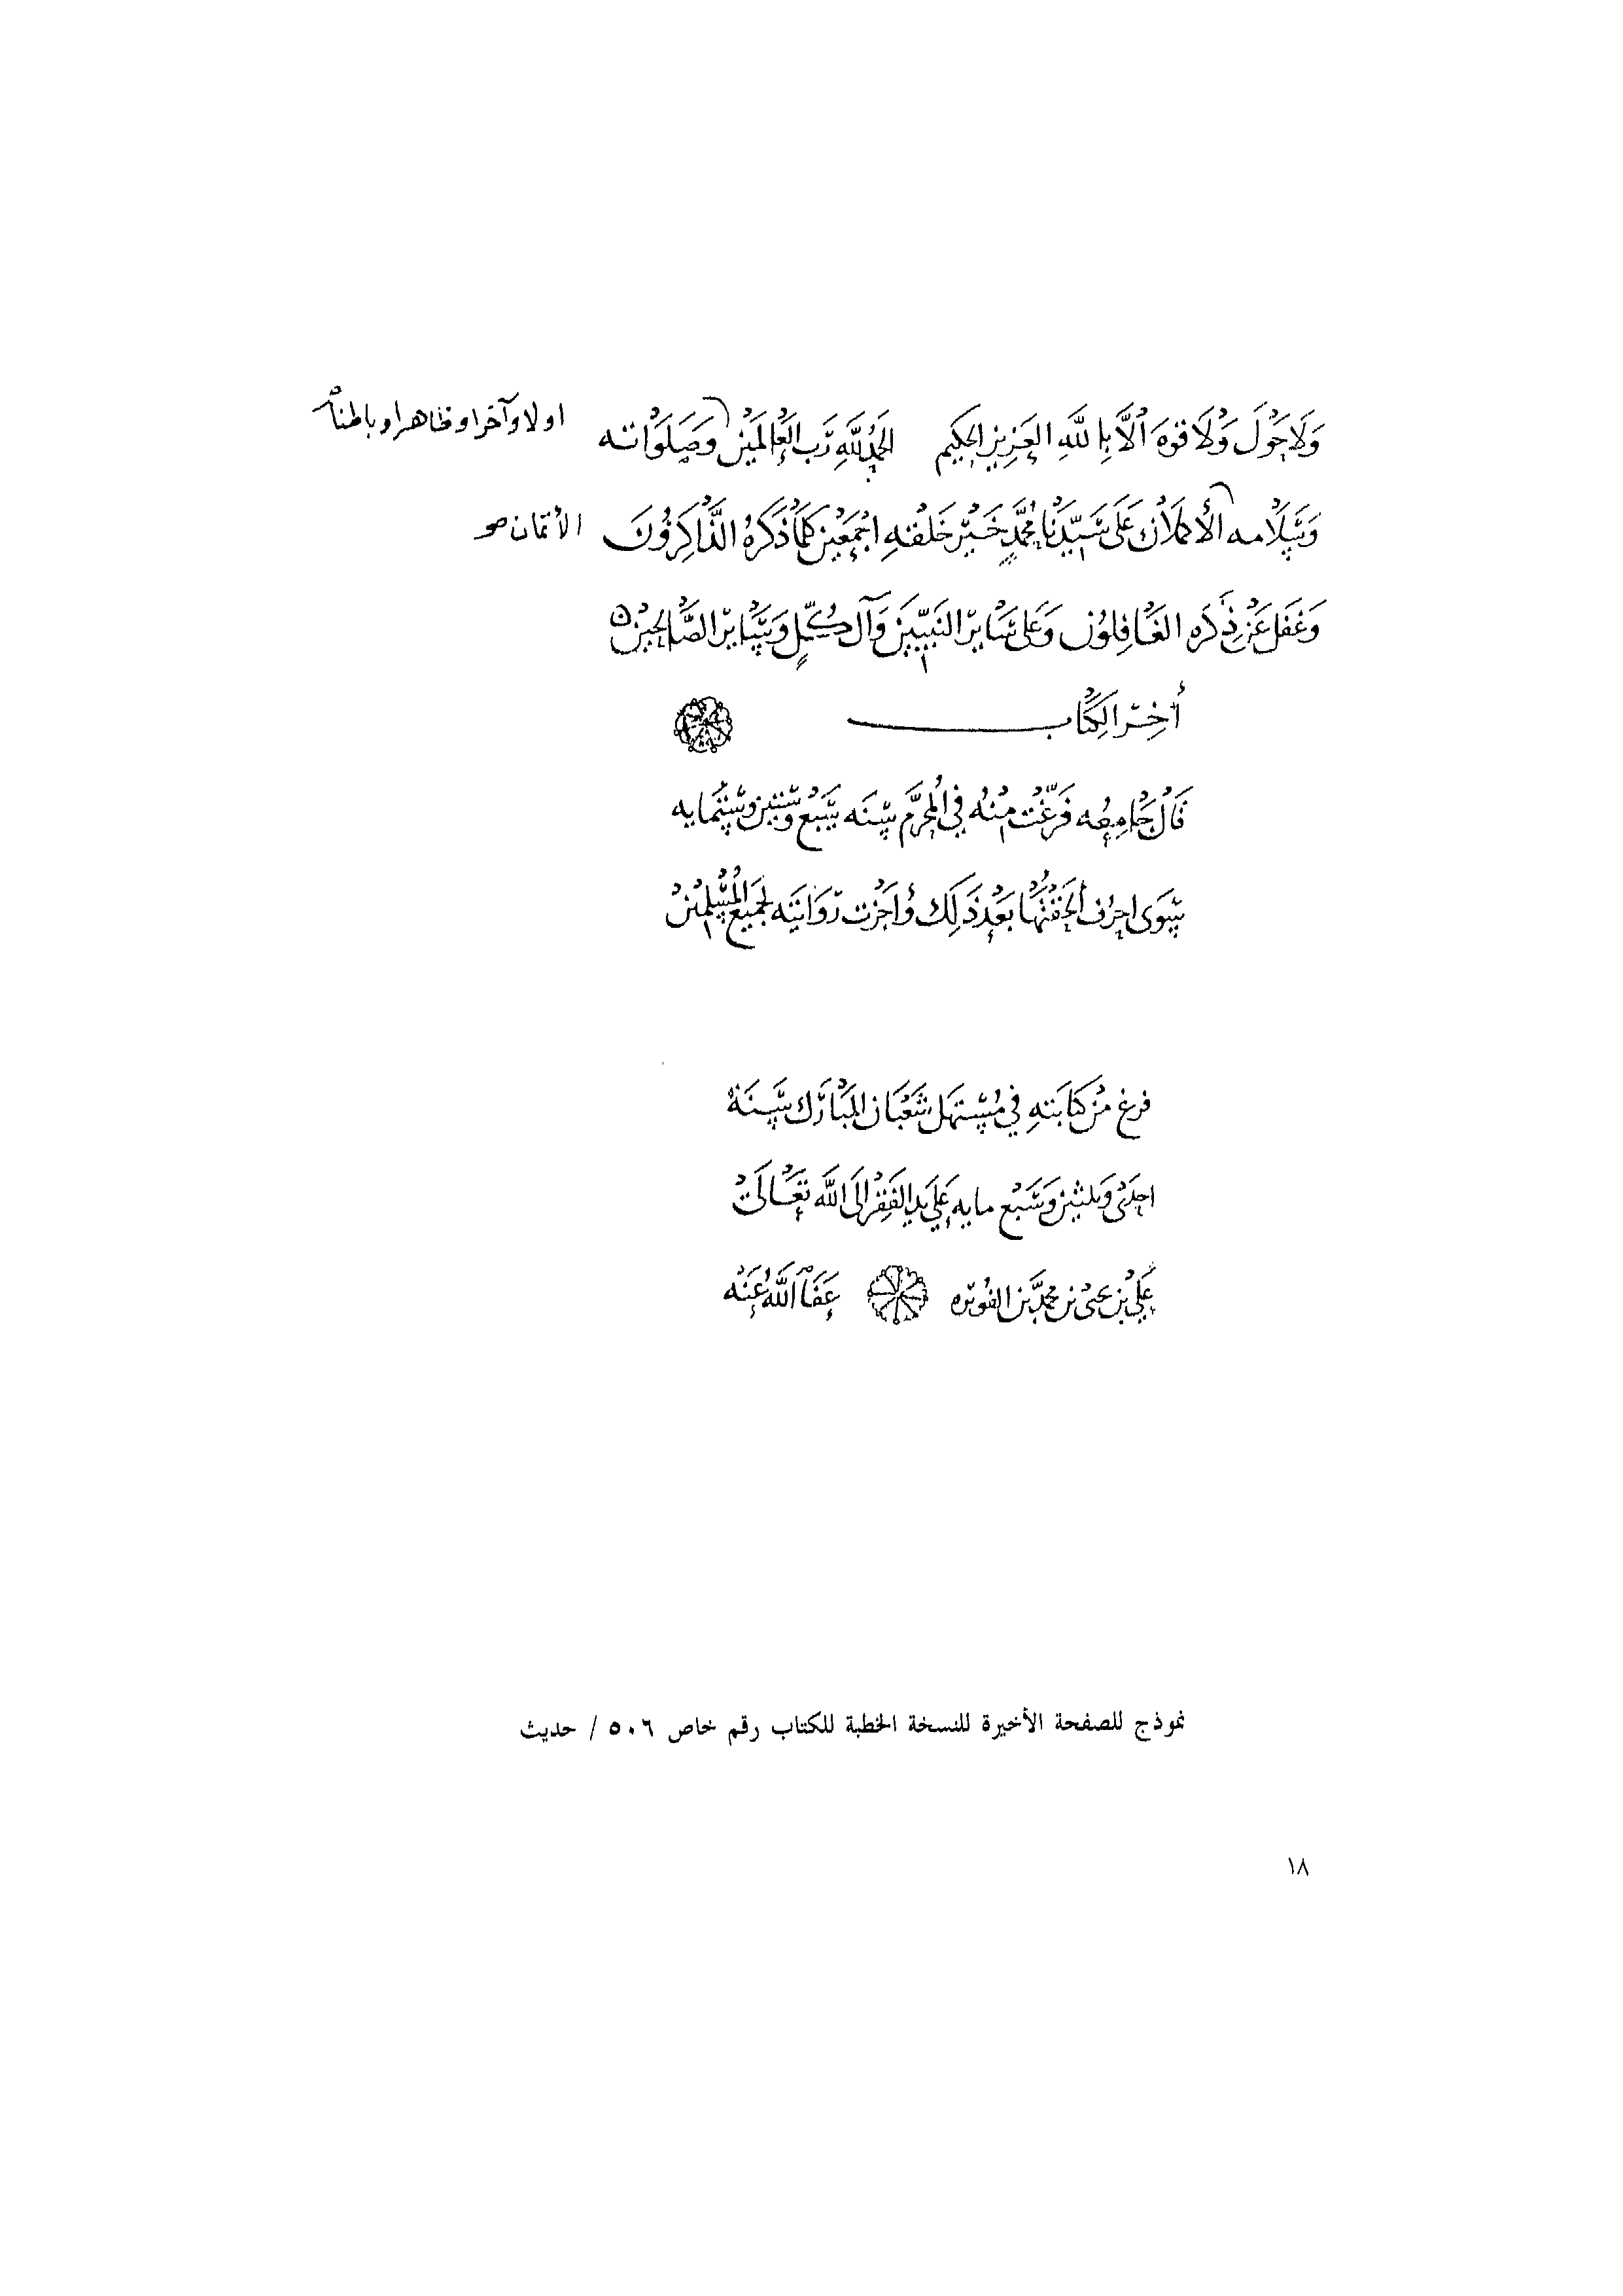 وَلَا حَوْلَ وَلَا قوه الَّا بِاللَّهِ العَزِيزِ الحكِيم الحمدُ لِلَّهِ رَبّ العَالَمِيْن وَصَلَوَاته اولا وآخرا وظاهرا وباطنا
وَسَلَامه الأَكملَان عَلَى سَيِّدنَا مُحمَّدٍ خَيْر خَلْقهِ اجْمَعِيْن كلمَا ذكَرهُ الذَّاكِرُونَ الأتمان صح
وَغَفَل عَنْ ذِكْرَه الغَافِلُوْن وَعَلى سَاير النَبِيِّيَن وَآل كُلٍّ وَسَاير الصَّالحِيْن
أخِر الكِتَاب
قَالَ جَامِعُه فَرَغْت مِنْهُ فِي المُحَرَّم سَنَه سَبْع وسْتين وسْتمايه
سِوَى احرُف ألحَقْتُهَا بَعْد ذَلِك وَأجَزْت رَوَايَتَه لجَمِيع المُسْلِمْين
فرغ مْن كتابَتهِ في مُسْتهَل شَعْبَان المُبَارَك سَنَة
احِدَى وَثلثين وَسَبْع مايه عَلَى يد الفَقِيْر الَى اللَّه تَعَالَى
عَلِي بْن يحيىْ بن محمَّد بن الفويره عَفَا اللَّهُ عَنْه
نموذج للصفحة الأخيرة للنسخة الخطبة للكتاب رقم خاص ٥٠٦ / حديث
١٨